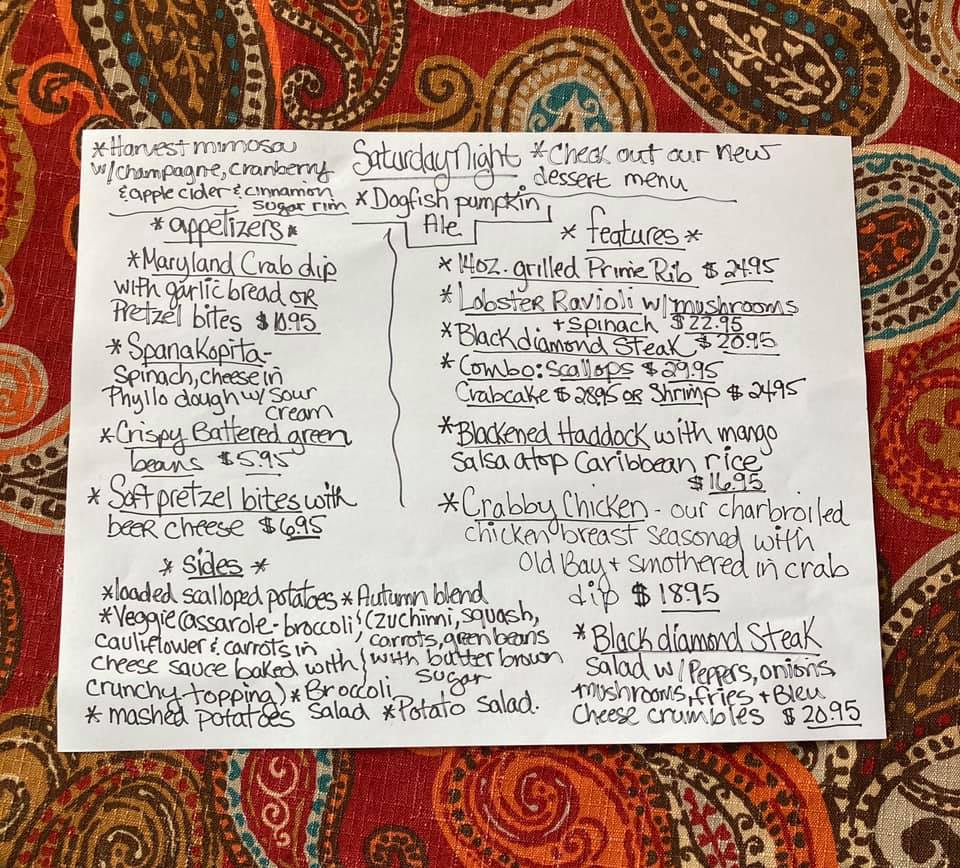 *Harvest mimosa
w/champagne, cranberry
& apple cider & cinnamon
sugar rim
Saturday Night
*Dogfish pumpkin
Ale
*Check out our new
dessert menu
*appetizers*
*Maryland Crab dip
with garlic bread OR
Pretzel bites $10.95
*Spanakopita-
Spinach, cheese in
Phyllo dough w/ sour
cream
*Crispy Battered green
beans $5.95
*Soft pretzel bites with
beer cheese $6.95
*Sides*
*loaded scalloped potatoes
*Veggie Cassarole-broccoli,
cauliflower & carrots in
cheese sauce baked with
crunchy topping)
*Autumn blend
(zuchinni, squash,
carrots, green beans
with butter brown
sugar
*Broccoli
Salad
*mashed potatoes
*Potato Salad.
*features*
*14oz. grilled Prime Rib $24.95
*Lobster Ravioli w/mushrooms
+ Spinach $22.95
*Black diamond Steak $20.95
*Combo: Scallops $29.95
Crabcake $28.95 OR Shrimp $24.95
*Blackened Haddock with mango
Salsa atop Caribbean rice
$16.95
*Crabby Chicken - our charbroiled
chicken breast seasoned with
Old Bay + smothered in crab
dip $18.95
*Black diamond Steak
Salad w/ Peppers, onions,
mushrooms, fries + Bleu
Cheese crumbles $20.95